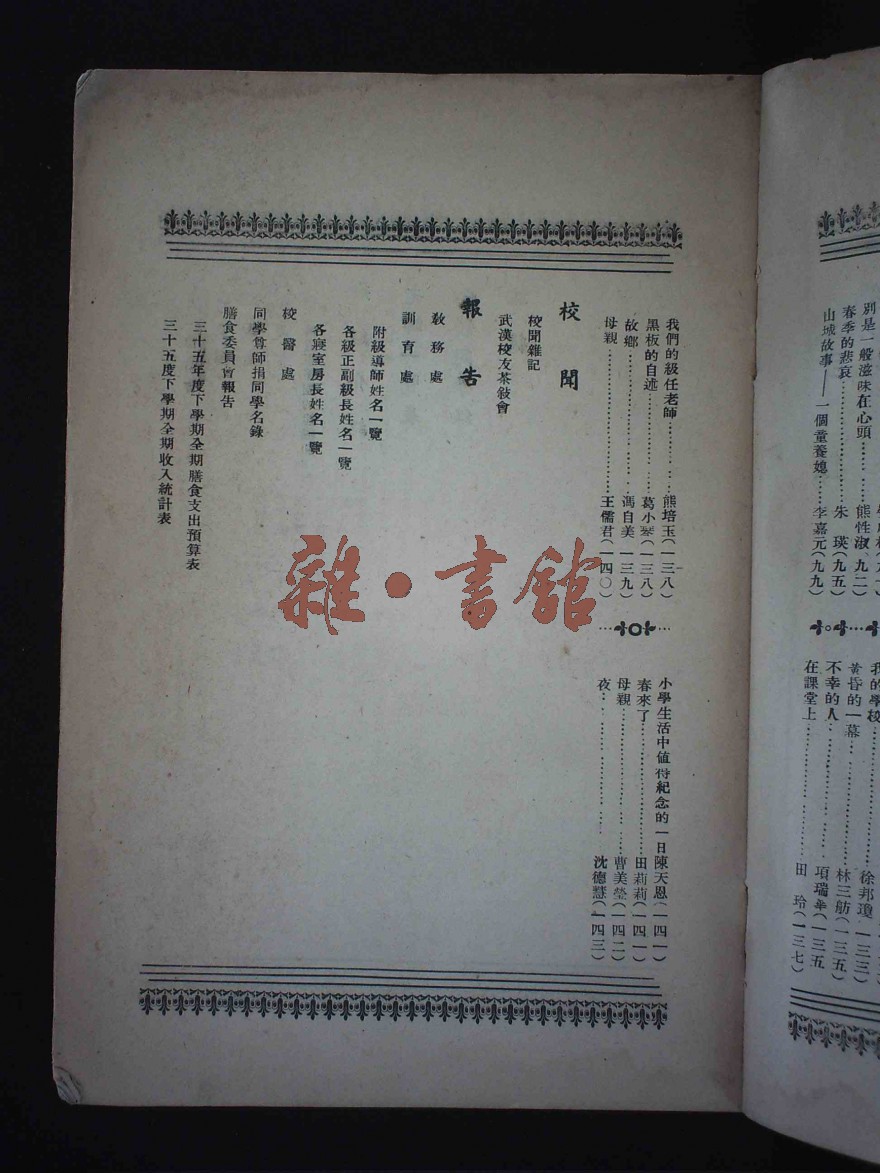 別是一般滋味在心頭………熊性淑(九二)
春季的悲哀………………朱　瑛(九五)
山城故事——一個童養媳……李嘉元(九九)
徐邦瓊(一三三)
黃昏的一幕………………林三舫(一三五)
不幸的人………………項瑞華(一三五
在課堂上………………田　玲(一三七)
我們的級任老師…………熊培玉(一三八)
黑板的自述………………葛小琴(一三八)
故鄉………………馮自美(一三九)
母親………………王儒君(一四〇)
小學生活中值得紀念的一日陳天恩(一四一)
春來了………………田莉莉(一四一)
母親………………曹美瑩(一四二)
夜………………沈德慧(一四三)
校聞
校聞雜記
武漢校友茶敍會
報告
敎務處
訓育處
附級導師姓名一覽
各級正副級長姓名一覽
各寢室房長姓名一覽
校醫處
同學尊師捐同學名錄
膳食委員會報告
三十五年度下學期全期膳食支出預算表
三十五度下學期全期收入統計表
雜·書館